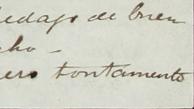 pedazo de buen
cho -
ero tontamente